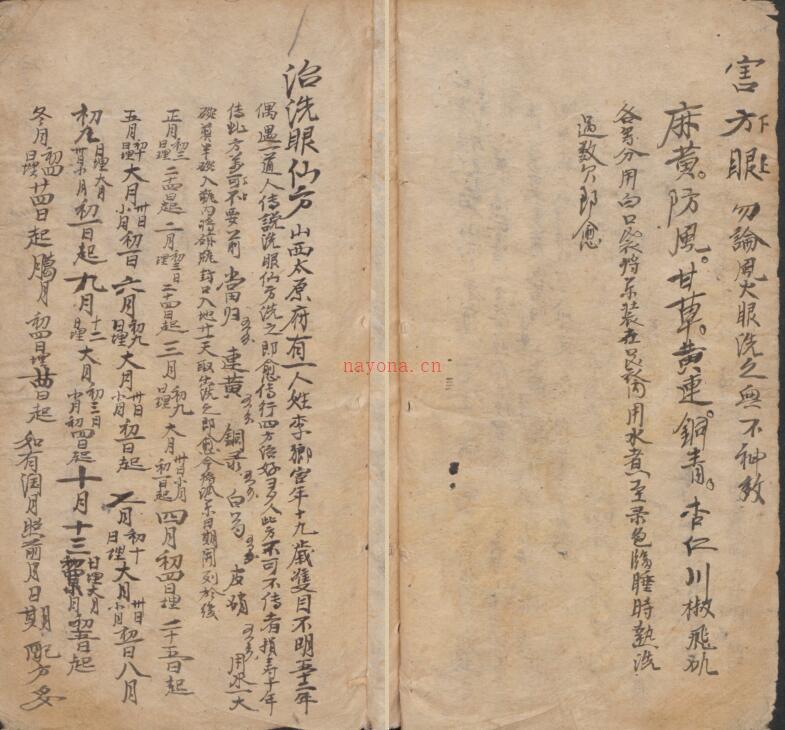 害方眼 勿論風火眼洗之無不神效
麻黃。防風。甘草。黃連。銅青。杏仁川椒飛礬
各等分用白口袋將藥裝在內用水煮至录色臨睡時熱洗
過数次即愈
治洗眼仙方 山西太原府有一人姓李鄉宦年十九歲雙目不明五十二年
偶遇一道人傳説洗眼仙方洗之即愈傳行四方治好多人此方不可不傳者損壽十年
傳此方 不要 當归 連黃 銅录 白芍 皮硝 用水一大
碗 半碗入瓶內將瓶封口入地廿天取出洗之即愈今將 日期開列於後
正月初三日埋二十四日起 二月初三日埋二十四日起 三月初九日埋 大月卅日小月初一日起 四月初四日埋二十五日起
五月初十日埋 大月卅日小月初一日 六月初九日埋 大月卅日小月初一日起 七月初十日埋 大月卅日小月初一日 八月
初九日埋大月卅日小月初一日起 九月十二日埋 大月初三日小月初四日起 十月十三日埋大月
冬月初四日埋廿四日起 臘月初四日埋廿日起 如有閏月照前月日期 配方妥
nayona.cn